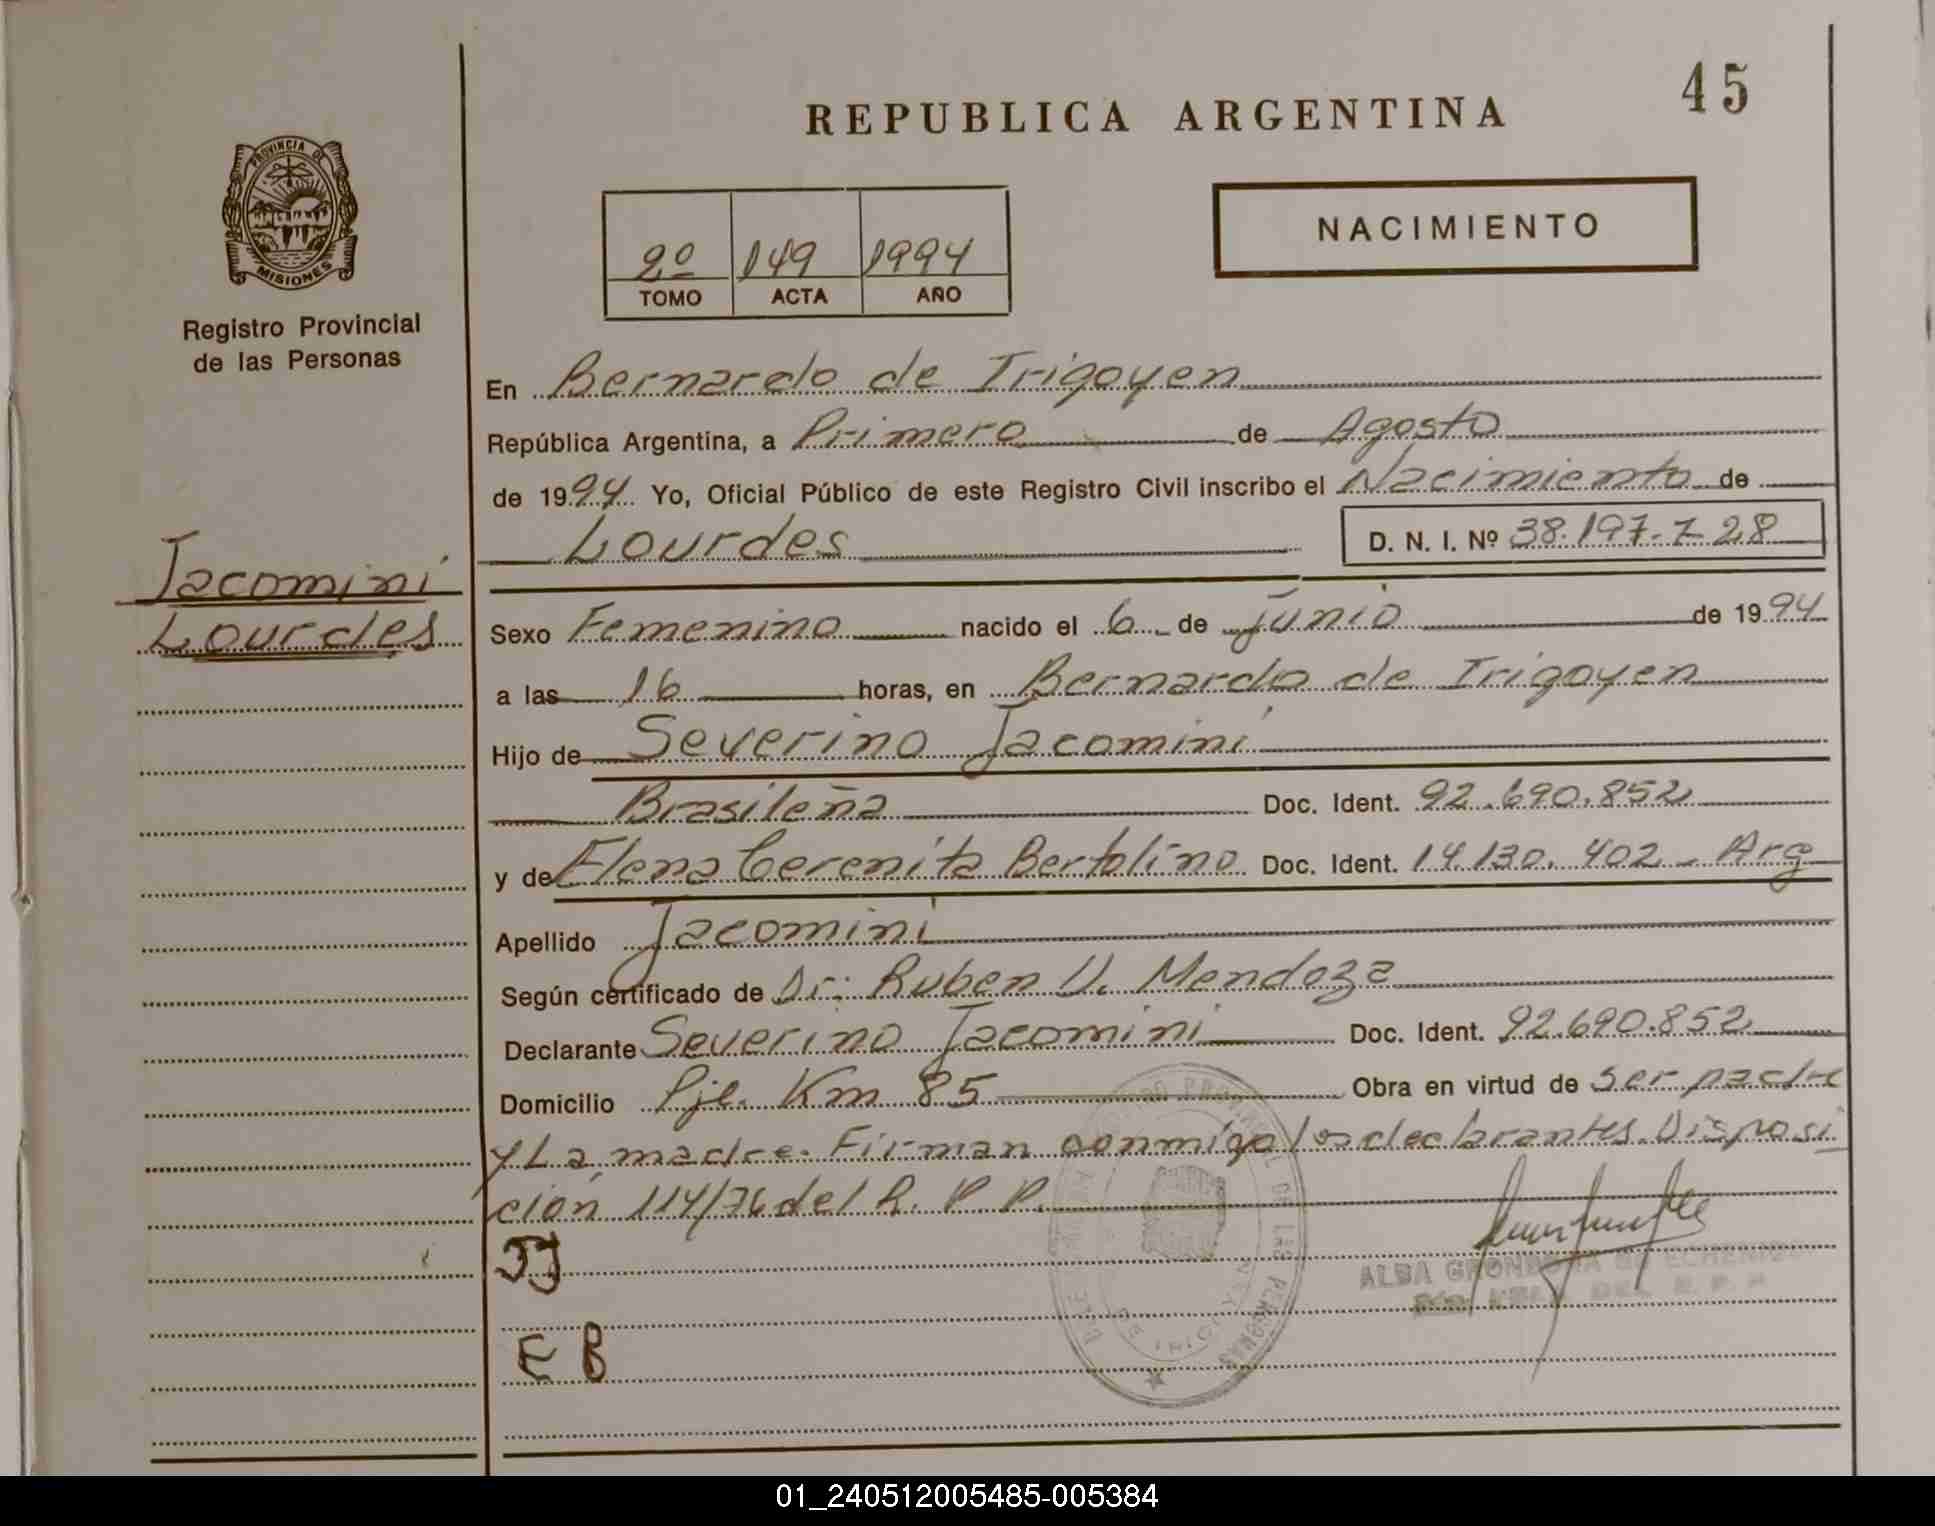 45
REPUBLICA ARGENTINA
PROVINCIA DE
MISIONES
Registro Provincial
de las Personas
NACIMIENTO
2º 149 1994
TOMO ACTA AÑO
En Bernardo de Irigoyen
República Argentina, a Primero de Agosto
de 1994 Yo, Oficial Público de este Registro Civil inscribo el Nacimiento de
Lourdes D. N. I. Nº 38.197.728
Jacomini
Lourdes
Sexo Femenino nacido el 6 de junio de 1994
a las 16 horas, en Bernardo de Irigoyen
Hijo de Severino Jacomini
Brasileña Doc. Ident. 92.690.852
y de Elena Cerenita Bertolino Doc. Ident. 14.130.402 - Arg
Apellido Jacomini
Según certificado de Dr: Ruben V. Mendoza
Declarante Severino Jacomini Doc. Ident. 92.690.852
Domicilio Pje. Km 85 Obra en virtud de ser padre
y La madre. Firman conmigo los declarantes. Disposi
ción 114/76 del R. P. P.
JJ
EB
ALBA
DE LAS PERSONAS
01_240512005485-005384